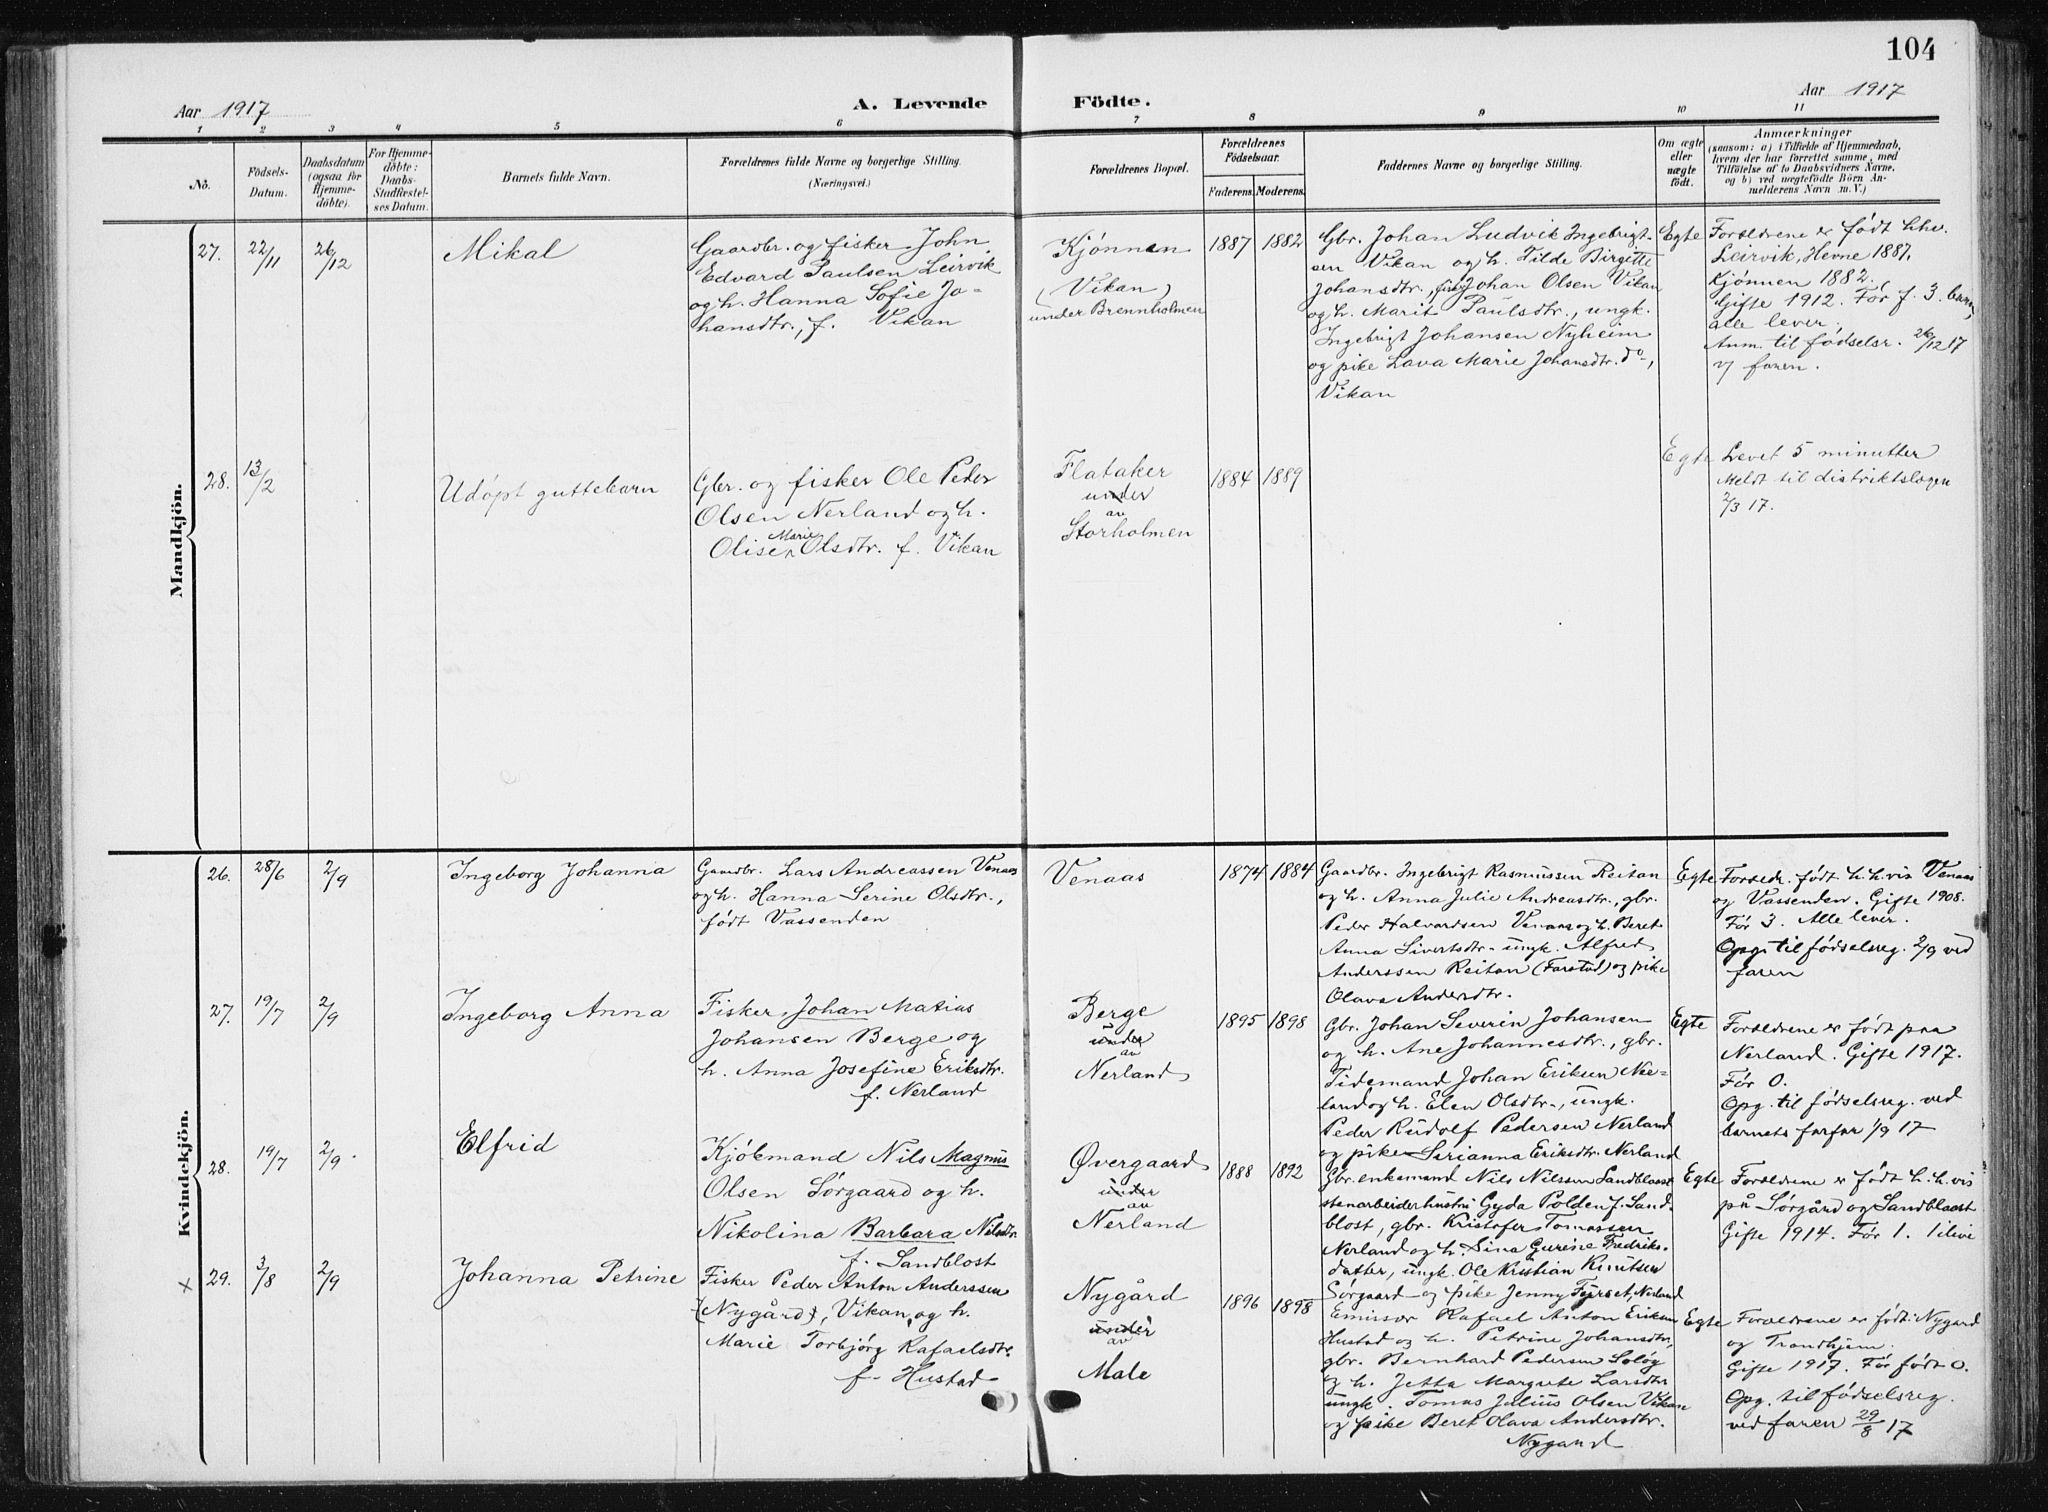 104
Aar 1917
A. Levende Födte.
Aar 1917
1 2 3 4 5 6 7 8 9 10 11
No.
Födsels-
Datum.
Daabsdatum
(ogsaa for
Hjemme-
döbte).
For Hjemme-
döbte:
Daabs-
Stadfæstel-
ses Datum.
Barnets fulde Navn.
Forældrenes fulde Navne og borgerlige Stilling.
(Næringsvei.)
Forældrenes Bopæl.
Forældrenes
Födselsaar.
Faderens. Moderens.
Faddernes Navne og borgerlige Stilling.
Om ægte
eller
uægte
födt.
Anmærkninger
(saasom: a) i Tilfælde af Hjemmedaab,
hvem der har forrettet samme, med
Tilföielse af to Daabsvidners Navne,
og b) ved uægtefödte Börn An-
melderens Navn m. V.)
Mandkjön.
27.
22/11
26/12
Mikal
Gaardbr. og fisker John
Edvard Paulsen Leirvik
og h. Hanna Sofie Jo-
hansdtr., f. Vikan
Kjønnen
(Vikan)
under Brennholmen
1887 1882
Gbr. Johan Ludvik Ingebrigt-
sen Vikan og h. Tilde Birgitte
Johansdtr., fisk. Johan Olsen Vikan
og h. Marit Paulsdtr., ungk.
Ingebrigt Johansen Nyheim
og pike Lava Marie Johansdtr. do,
Vikan
Egte
Foreldrene er født hhv.
Leirvik, Hevne 1887,
Kjønnen 1882.
Gifte 1912. Før f. 3 barn,
alle lever.
Anm. til fødselsr. 26/12 17
v/ faren.
28.
13/2
Udöpt guttebarn
Gbr. og fisker Ole Peder
Olsen Nerland og h.
Marie
Olise Olsdtr. f. Vikan
Flataker
under
av
Storholmen
1884 1889
Egte
Levet 5 minutter
Meldt til distriktslægen
2/3 17.
Kvindekjön.
26.
28/6
2/9
Ingeborg Johanna
Gaardbr. Lars Andreassen Venaas
og h. Hanna Serine Olsdtr.,
født Vassenden
Venaas
1874 1884
Gaardbr. Ingebrigt Rasmussen Reitan
og h. Anna Julie Andreasdtr., gbr.
Peder Halvardsen Venaas og h. Beret
Anna Sivertsdtr. ungk. Alfred
Anderssen Reitan (Farstad) og pike
Olava Andersdtr.
Egte
Foreldr. født h.h.vis Venaas
og Vassenden. Gifte 1908.
Før 3. Alle lever.
Opg. til fødselsreg. 2/9 ved
faren
27.
19/7
2/9
Ingeborg Anna
Fisker Johan Matias
Johansen Berge og
h. Anna Josefine Eriksdtr.
f. Nerland
Berge
under
av
Nerland
1895 1898
Gbr. Johan Severin Johansen
og h. Ane Johannesdtr., gbr.
Tidemand Johan Eriksen Nie-
land og h. Elen Olsdtr., ungk.
Peder Rudolf Pedersen Nerland
og pike Serianna Eriksdtr. Nerland
Egte
Foreldrene er født paa
Nerland. Gifte 1917.
Før 0.
Opg. til fødselsreg. ved
barnets farfar 1/9 17
28.
19/7
2/9.
Elfrid
Kjöbmand Nils Magnus
Olsen Sörgaard og h.
Nikolina Barbara Nilsdtr.
f. Sandblost
Øvergaard
under
av
Nerland
1888 1892
Gbr. enkemand Nils Nilssen Sandblost
stenarbeiderhustru Gyda Polden f. Sand-
blost, gbr. Kristofer Tomassen
Nerland og h. Sina Gurine Fredriks-
datter, ungk. Ole Kristian Knutsen
Sørgaard og pike Jenny Nerland
Egte
Foreldrene er født h.h.vis
på Sørgård og Sandblaast
Gifte 1914. Før 1. 1 i live
×
29.
3/8
2/9
Johanna Petrine
Fisker Peder Anton Anderssen
(Nygård), Vikan, og h.
Marie Torbjørg Rafaelsdtr.
f. Hustad
Nygård
under
av
Male
1896 1898
Emissær Rafael Anton Eriksen
Hustad og h. Petrine Johansdtr,
gbr. Bernhard Pedersen Soløg
og h. Jetta Margrete Larsdtr
ungk. Tomas Julius Olsen Vikan
og pike Beret Olava Andersdtr.
Nygaard
Egte
Foreldrene er født: Nygard
og Trondhjem.
Gifte 1917. Før født 0.
Opg. til fødselsreg.
ved faren 29/8 17